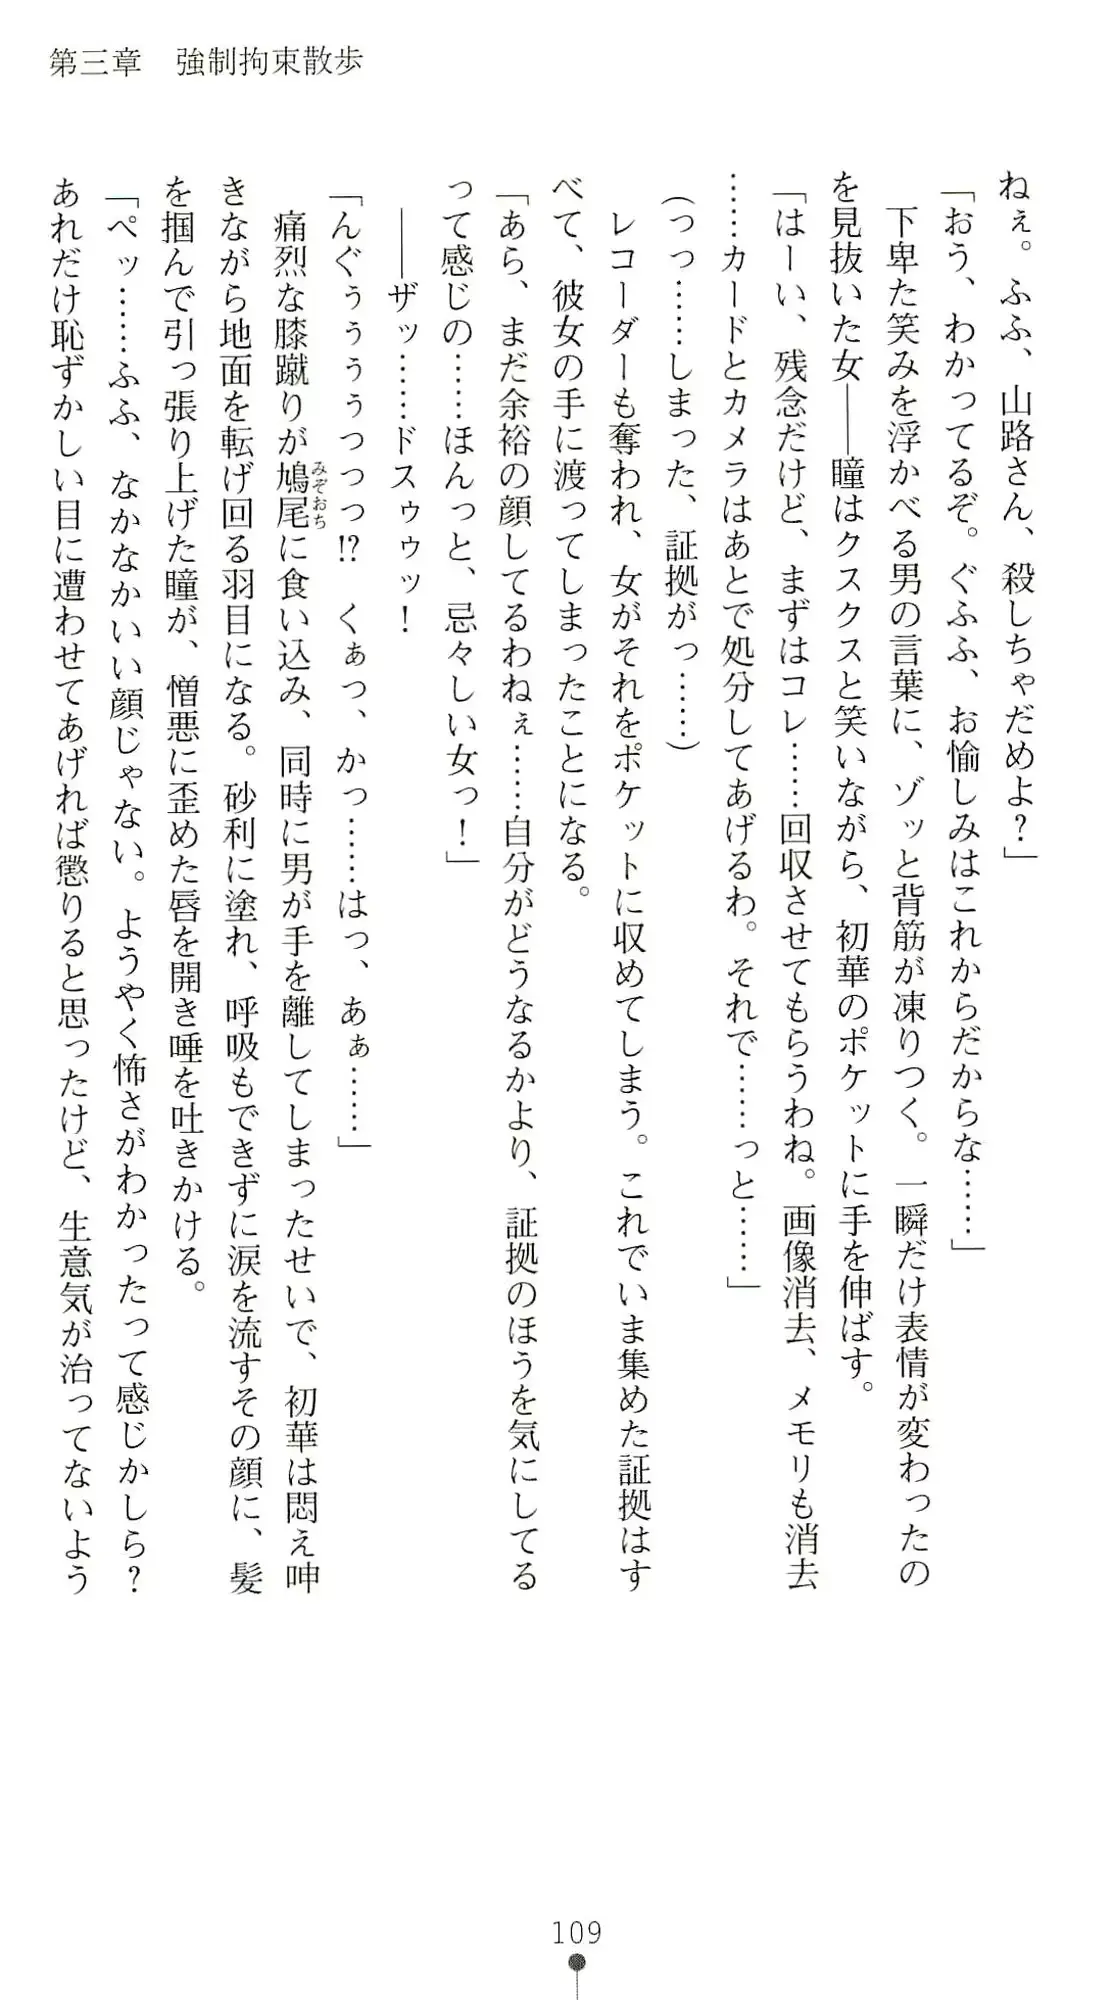 第三章　強制拘束散歩
ねぇ。ふふ、山路さん、殺しちゃだめよ？」
「おう、わかってるぞ。ぐふふ、お愉しみはこれからだからな……」
　下卑た笑みを浮かべる男の言葉に、ゾッと背筋が凍りつく。一瞬だけ表情が変わったの
を見抜いた女――瞳はクスクスと笑いながら、初華のポケットに手を伸ばす。
「はーい、残念だけど、まずはコレ……回収させてもらうわね。画像消去、メモリも消去
……カードとカメラはあとで処分してあげるわ。それで……っと……」
（っっ……しまった、証拠がっ……）
　レコーダーも奪われ、女がそれをポケットに収めてしまう。これでいま集めた証拠はす
べて、彼女の手に渡ってしまったことになる。
「あら、まだ余裕の顔してるわねぇ……自分がどうなるかより、証拠のほうを気にしてる
って感じの……ほんっと、忌々しい女っ！」
　――ザッ……ドスゥゥッ！
「んぐぅぅぅぅっっっ!?　くぁっ、かっ……はっ、あぁ……」
　痛烈な膝蹴りが鳩尾みぞおちに食い込み、同時に男が手を離してしまったせいで、初華は悶え呻
きながら地面を転げ回る羽目になる。砂利に塗れ、呼吸もできずに涙を流すその顔に、髪
を掴んで引っ張り上げた瞳が、憎悪に歪めた唇を開き唾を吐きかける。
「ペッ……ふふ、なかなかいい顔じゃない。ようやく怖さがわかったって感じかしら？
あれだけ恥ずかしい目に遭わせてあげれば懲りると思ったけど、生意気が治ってないよう
109